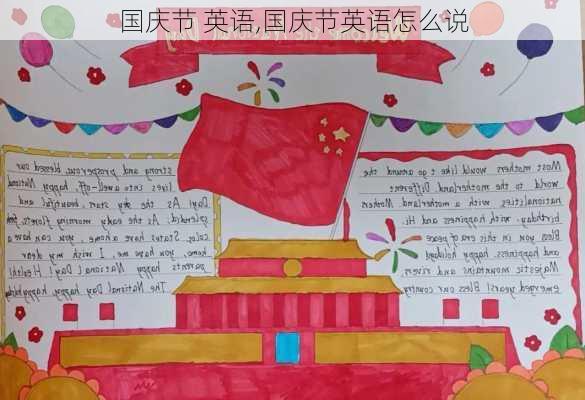 国庆节 英语,国庆节英语怎么说
Most mothers would like t go around the
world to the motherland Different
nationalities, with a motherland
birthday, with happiness with.
Bless you in this era of peace
and happiness, happy holidays!
Majestic mountains and rivers
emerged years! Bless our country
strong and prosperous, blessed our
lives into a well-off, happy National
Day! As the sky stars, beautiful and
splendid; As the early morning flowers,
color; States have a home, you can have a
home, you have me. I wish my dear
parents happy National Day! Health!
The National Day happy, happy